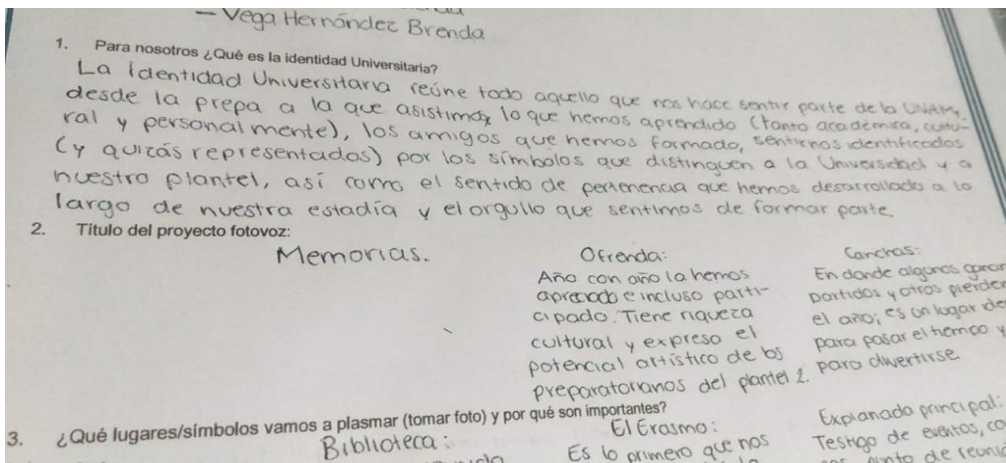 — Vega Hernández Brenda
1. Para nosotros ¿Qué es la identidad Universitaria?
La identidad Universitaria reúne todo aquello que nos hace sentir parte de la UNAM,
desde la prepa a la que asistimos, lo que hemos aprendido (tanto académica, cultu-
ral y personalmente), los amigos que hemos formado, sentirnos identificados
(y quizás representados) por los símbolos que distinguen a la Universidad y a
nuestro plantel, así como el sentido de pertenencia que hemos desarrollado a lo
largo de nuestra estadía y el orgullo que sentimos de formar parte.
2. Título del proyecto fotovoz:
Memorias.
Ofrenda:
Año con año la hemos
apreciado e incluso parti-
cipado. Tiene riqueza
cultural y expresa el
potencial artístico de los
preparatorianos del plantel 2.
Canchas:
En donde algunos
partidos y otros pierden
el año; es un lugar de
para pasar el tiempo y
para divertirse
3. ¿Qué lugares/símbolos vamos a plasmar (tomar foto) y por qué son importantes?
Biblioteca:
El Erasmo:
Es lo primero que nos
Explanada principal:
Testigo de eventos, co
de reuni